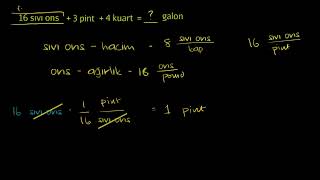 16 sıvı ons + 3 pint + 4 kuart = ? galon
sıvı ons - hacim - 8 sıvı ons / bap 16 sıvı ons / pint
ons - ağırlık - 16 ons / pound
16 sıvı ons · 1 pint / 16 sıvı ons = 1 pint